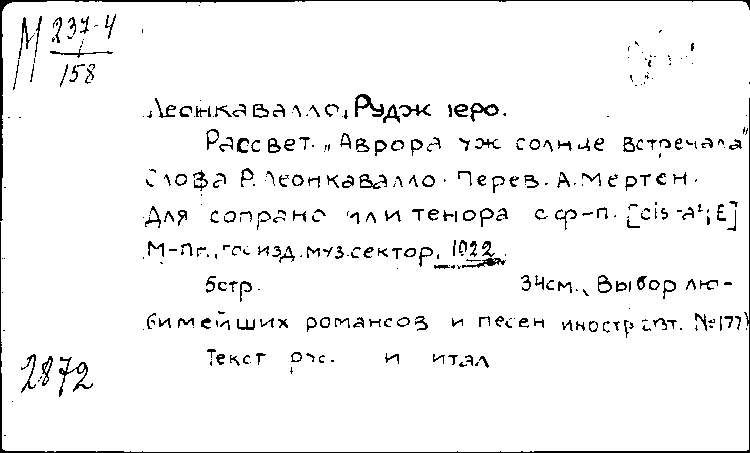 М 237-4
158
Леонкавалло, Руджиеро.
Рассвет. "Аврора уж солнце встречала"
Слова Р. Леонкавалло. Перев. А. Мертен.
Для сопрано или тенора с ф-п. [cis-a²; E]
М-Пг., Гос изд. муз. сектор, 1922.
5 стр. 34 см. (Выбор лю-
бимейших романсов и песен иностр авт. № 177)
Текст рус. и итал
2872